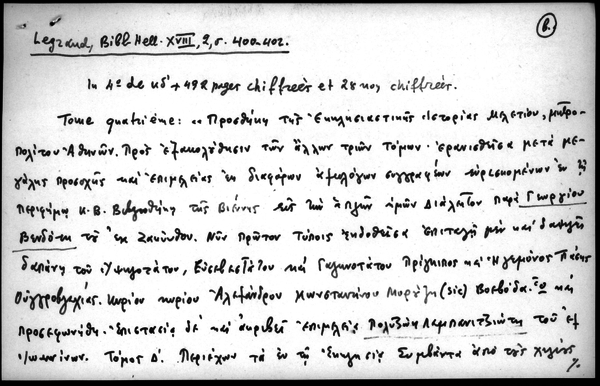 6.
Legrand, Bibl. Hell. XVIII, 2, σ. 400-402.
In 4º de κδ' + 492 pages chiffrées et 28 non chiffrées.
Tome quatrième: «Προσθήκη της Εκκλησιαστικής Ιστορίας Μελετίου, μητρο-
πολίτου Αθηνών. Προς εξακολούθησιν των άλλων τριών τόμων. ερανισθείσα μετά με-
γάλης προσοχής και επιμελείας εκ διαφόρων αξιολόγων συγγραφέων ευρισκομένων εν τη
περιφήμω Κ.Β. Βιβλιοθήκη της Βιέννης εις την απλήν ημών Διάλεκτον παρά Γεωργίου
Βενδότη του εκ Ζακύνθου. Νυν πρώτον τύποις εκδοθείσα επιταγή μεν και δαψιλεί
δαπάνη του Υψηλοτάτου, Ευσεβεστάτου και Γαληνοτάτου Πρίγκιπος και Ηγεμόνος Πάσης
Ουγγροβλαχίας. Κυρίου κυρίου Αλεξάνδρου Κωνσταντίνου Μορούζη (sic) Βοεβόδα. Ω και
προσεφωνήθη. επιστασία δε και ακριβεί επιμελεία Πολυζώη Λαμπανιτζιώτη του εξ
Ιωαννίνων. Τόμος Δ'. Περιέχων τα εν τη Εκκλησία Συμβάντα από τους χιλίους
%